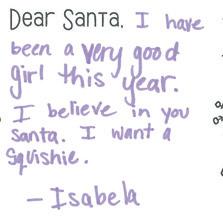 Dear Santa, I have
been a very good
girl this year.
I believe in you
santa. I want a
Squishie.
- Isabela